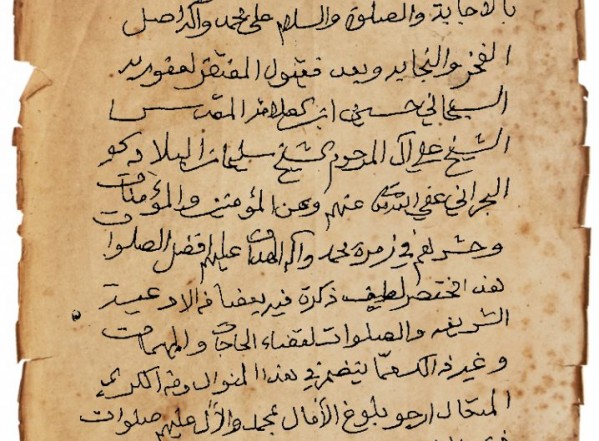 بالاجابة والصلوة والسلام على محمد واله اصل
الفخر والنجابة وبعد فيقول المفتقر لعفو ربه
السبحاني حسين ابن العلامة المقدس
الشيخ علي ال المرحوم الشيخ سليمان البلادي
البحراني عفى الله عنهم وعن المؤمنين والمؤمنات
وحشرهم في زمرة محمد واله الهداة عليهم افضل الصلوات
هذا مختصر لطيف ذكرة فيه بعضا من الادعية
الشريفة والصلوات لقضاء الحاجات والمهمات
وغير ذالك مما يتضمن في هذا المنوال ومن الكريم
المتعال ارجو بلوغ الأمال بمحمد والأل عليهم صلوات